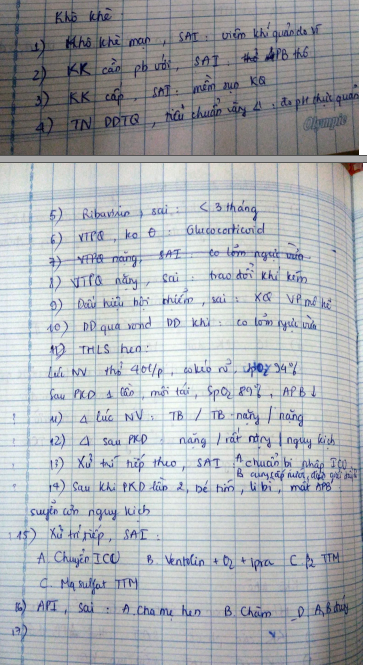 Khò khè
1) Khò khè mạn, SAI: viêm khí quản do vi
2) KK cần pb với, SAI: APB thô
3) KK cấp, SAI: mềm sụn KQ
4) TN DDTQ, tiêu chuẩn vàng Δ: đo pH thực quản
Olympic
5) Ribavirin, sai: < 3 tháng
6) VTPQ, ko θ: Glucocorticoid
7) VTPQ nặng, SAI: co lõm ngực vừa
8) VTPQ nặng, Sai: trao đổi khí kém
9) Dấu hiệu bội nhiễm, sai: XQ VP mô kẽ
10) DD qua sond DD khi: co lõm ngực vừa
11) THLS hen:
Lúc NV thở 40l/p, co kéo rõ, SpO2 94%
Sau PKD 1 lần, môi tái, SpO2 89%, APB ↓
11) Δ lúc NV: TB / TB-nặng / nặng
12) Δ sau PKD: nặng / rất nặng / nguy kịch
13) Xử trí tiếp theo, SAI: A chuẩn bị nhập ICU
B cung cấp nước, điện giải
14) Sau khi PKD lần 2, bé tím, li bì, mất APB
suyễn cơn nguy kịch
15) Xử trí tiếp, SAI:
A. Chuyển ICU B. Ventolin + O2 + ipra C. β2 TTM
C. Mg sulfat TTM
16) API, sai: A. cha mẹ hen B. Chàm D. A, B đúng
17)